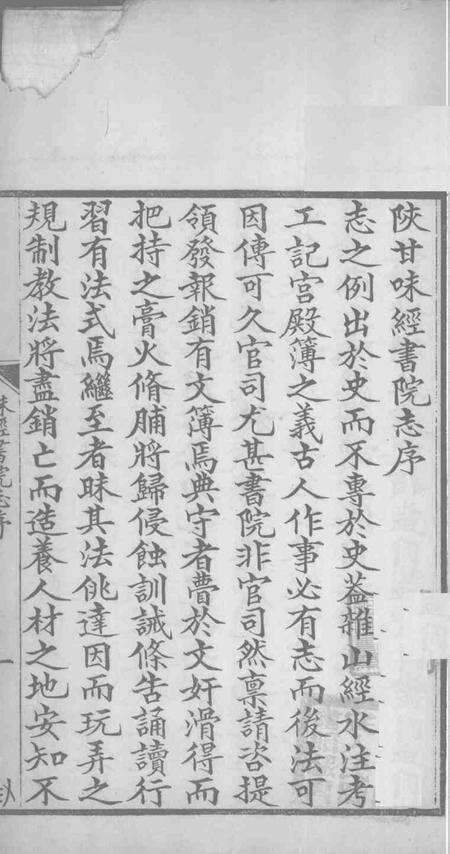 陝甘味經書院志序
志之例出於史而不專於史葢雜山經水注考
工記宮殿簿之義古人作事必有志而後法可
因傳可久官司尤甚書院非官司然禀請咨提
領發報銷有文簿焉典守者瞢於文奸滑得而
把持之膏火脩脯將歸侵蝕訓誡條告誦讀行
習有法式焉繼至者昧其法佻達因而玩弄之
規制教法將盡銷亡而造養人材之地安知不
味經書院志序